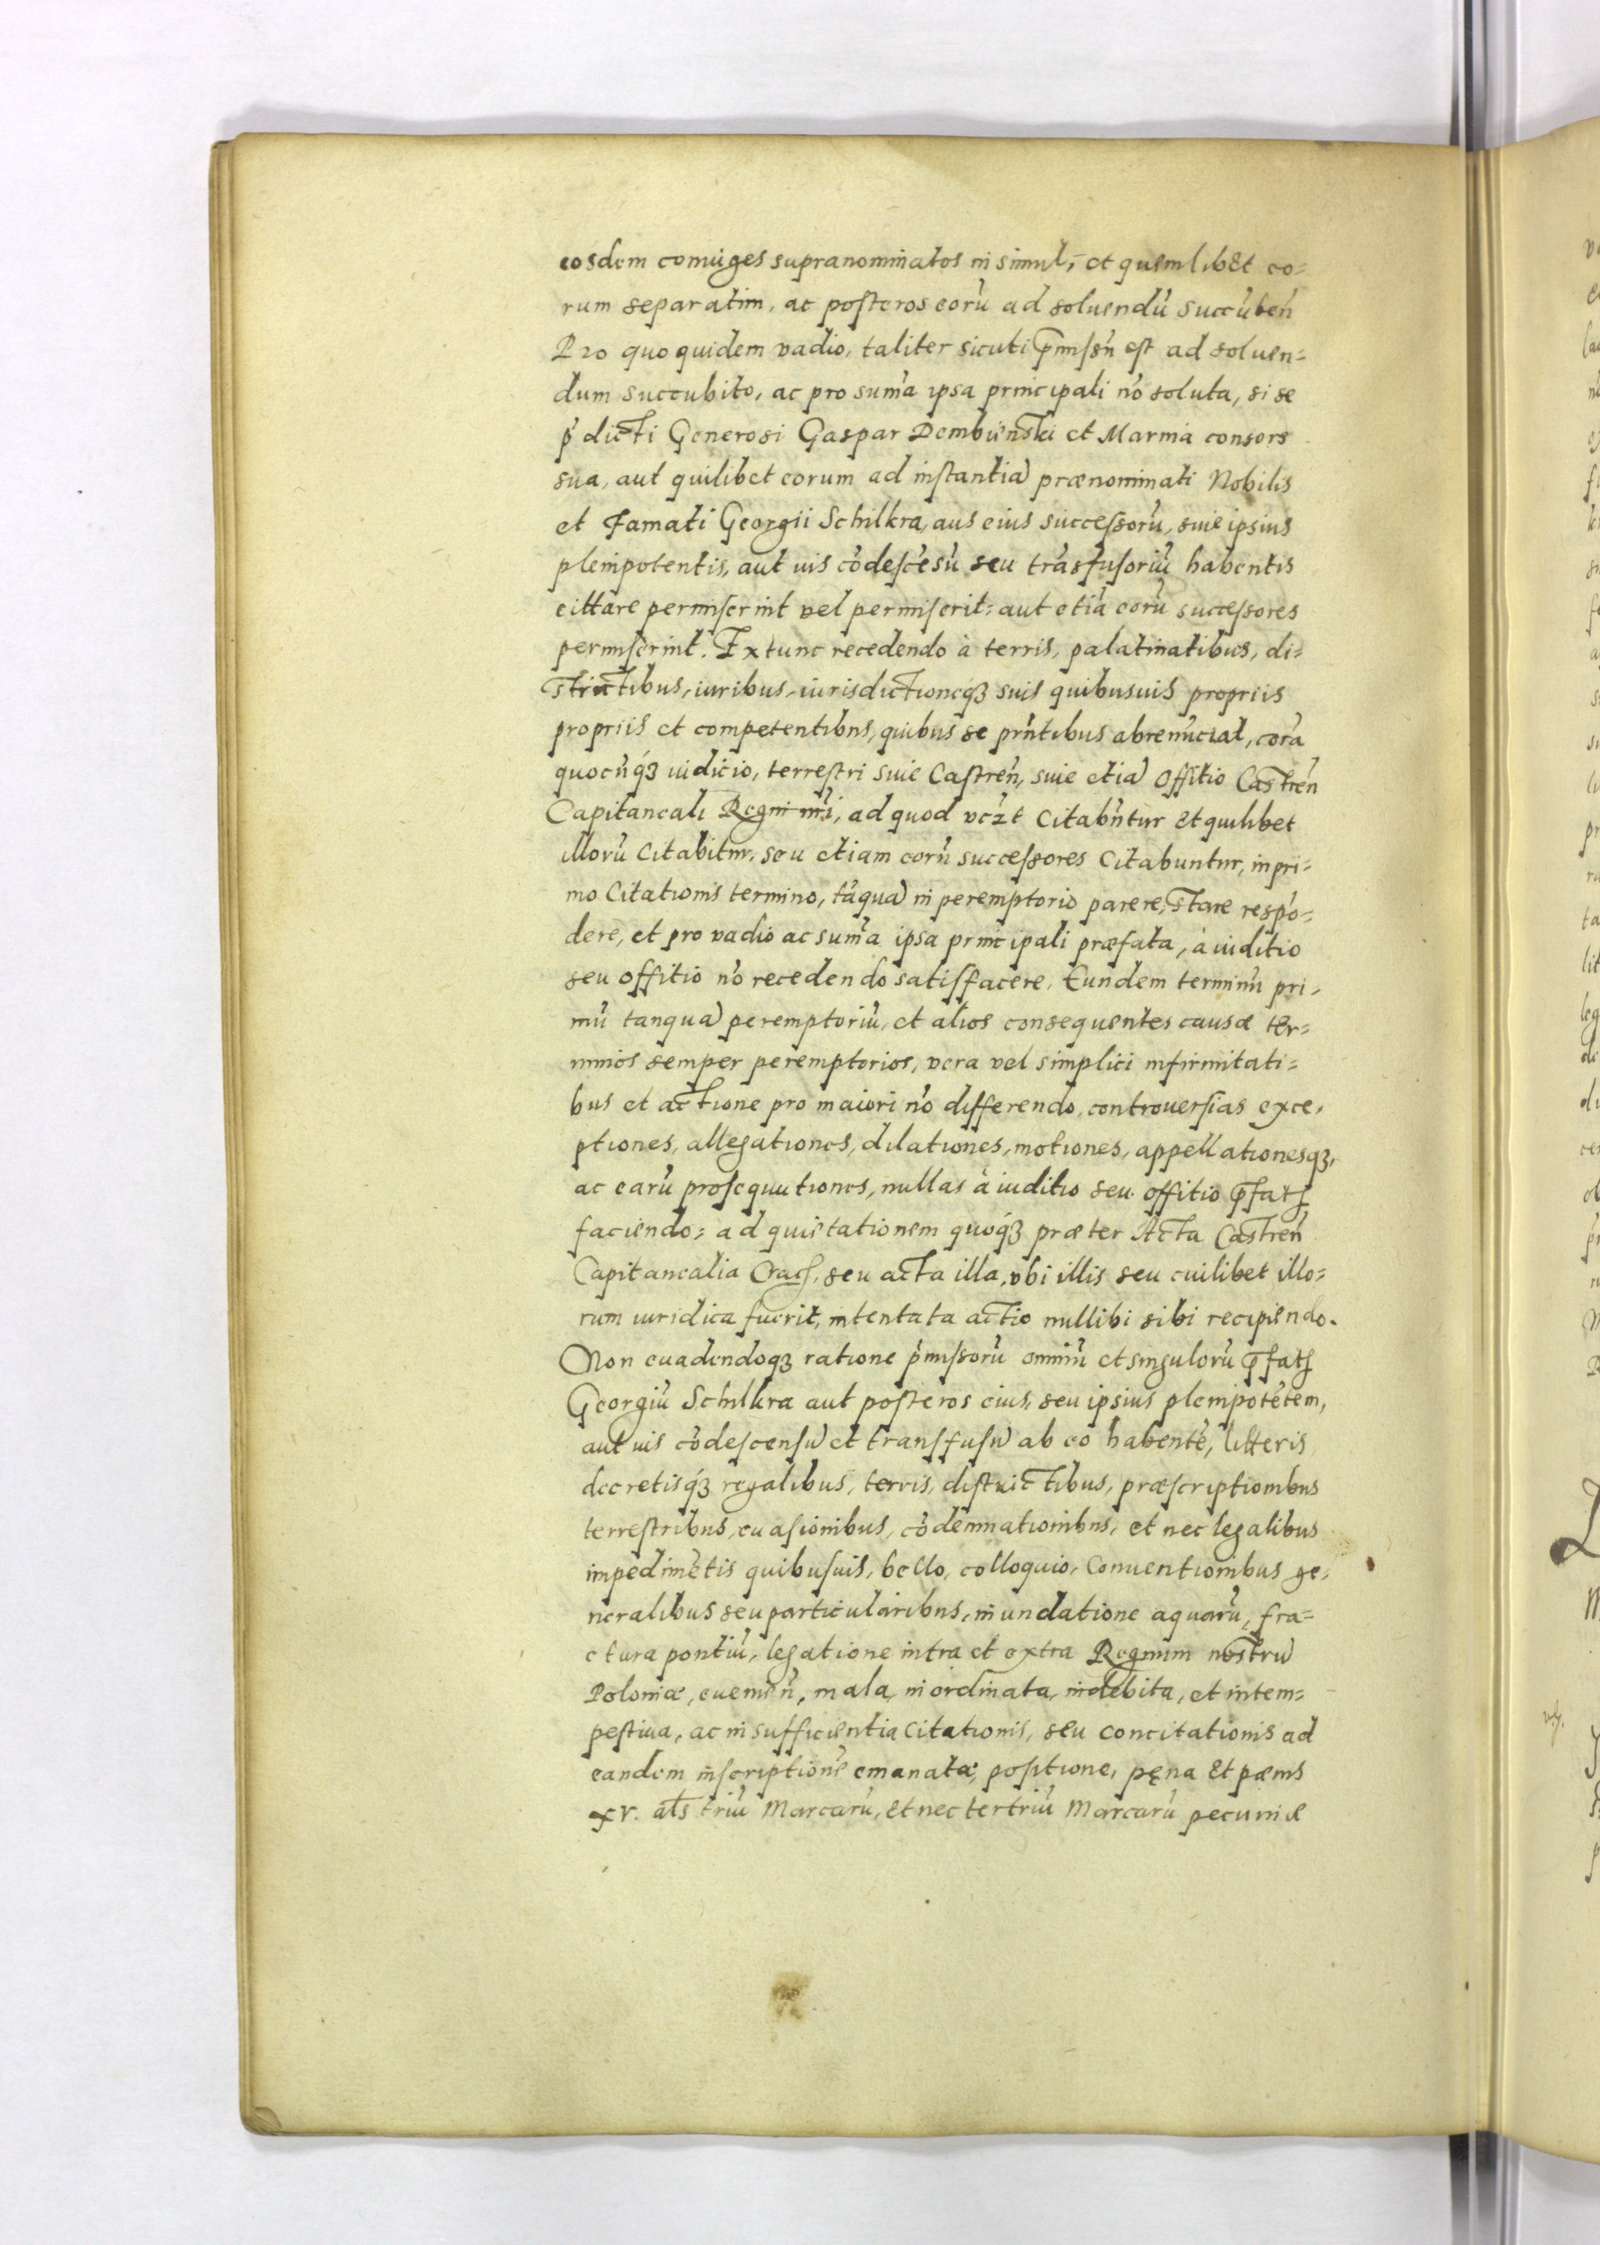 eosdem coniuges supranominatos in simul, et quemlibet eo=
rum separatim, ac posteros eorũ ad soluendũ succũben̄
Pro quo quidem vadio, taliter sicuti p̄missũ est ad soluen=
dum succubito, ac pro sum̄a ipsa principali nõ soluta, si se
p̄dicti Generosi Gaspar Dembienski et Marina consors
sua, aut quilibet eorum ad instantiã prænominati Nobilis
et Famati Georgii Schilkra, aus eius successorũ, siue ipsius
plenipotentis, aut uis cõdescẽsũ seu trãsfusoriũ habentis
cittare permiserint vel permiserit: aut etiã eorũ successores
permiserint. Extunc recedendo à terris, palatinatibus, di=
strictibus, iuribus, iurisdictioneqȝ suis quibusuis propriis
propriis et competentibus, quibus se pñtibus abrenũciat, corã
quocũqȝ iudicio, terrestri siue Castren̄, siue etiã Offitio Castren̄
Capitaneali Regni nr̄i, ad quod vcȝt citabũtur et quilibet
illorũ citabitur, seu etiam eorũ successores citabuntur, in pri=
mo Citationis termino, tãquã in peremptorio parere, stare respõ=
dere, et pro vadio ac sum̄a ipsa principali præfata, à iuditio
seu offitio nõ recedendo satisfacere. Eundem terminũ pri=
mũ tanquã peremptoriũ, et alios consequentes causæ ter=
minos semper peremptorios, vera vel simplici infirmitati=
bus et actione pro maiori nõ differendo, controuersias exce=
ptiones, allegationes, dilationes, motiones, appellationesqȝ,
ac earũ prosequutiones, nullas à iuditio seu offitio p̄fatꝭ
faciendo: ad quietationem quoqȝ præter Acta Castren̄
Capitanealia Cracꝭ, seu acta illa, vbi illis seu cuilibet illo=
rum iuridica fuerit, intentata actio nullibi sibi recipiendo.
Non euadendoqȝ ratione p̄missorũ omniũ et singulorũ p̄fatꝭ
Georgiũ Schilkra aut posteros eius, seu ipsius plenipotẽtem,
aut uis cõdescensũ et transfusũ ab eo habentẽ, litteris
decretisqȝ regalibus, terris, districtibus, præscriptionibus
terrestribus, euasionibus, cõdemnationibus, et nec legalibus
impedimẽtis quibusuis, bello, colloquio, conuentionibus ge=
neralibus seu particularibus, inundatione aquarũ, fra=
ctura pontiũ, legatione intra et extra Regnum nostrũ
Poloniæ, euenien̄, mala, inordinata, indebita, et intem=
pestiua, ac insufficientia citationis, seu concitationis ad
eandem inscriptionẽ emanatæ, positione, pęna et pænis
xv. als̄ triũ Marcarũ, et nec ter triũ Marcarũ pecuniæ